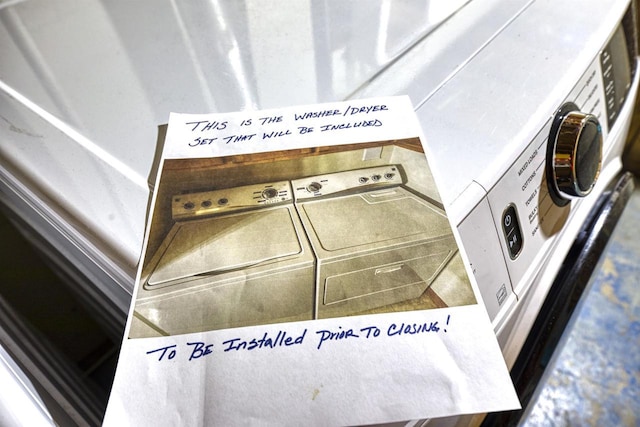 THIS IS THE WASHER/DRYER
SET THAT WILL BE INCLUDED
To BE Installed PRIOR TO CLOSING!
MIXED LOADS
COTTONS
TOWELS